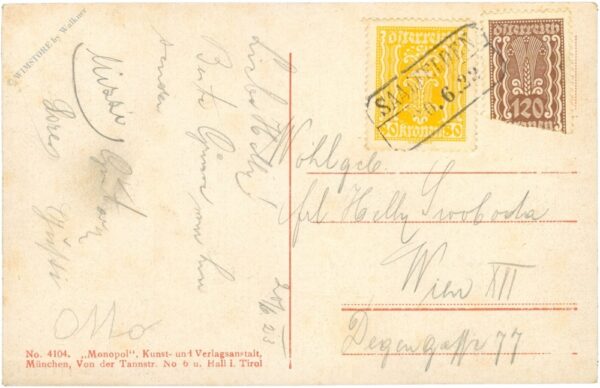 © WIMSTORE by Walkner
Liebe Helly!
Beste Grüsse
sendet
20/6 23
Otto
No. 4104. „Monopol", Kunst- und Verlagsanstalt,
München, Von der Tannstr. No 6 u. Hall i. Tirol
österreich
30 kronen 30
österreich
120
SAALFELDEN
20.6.23
Wohlgeb
frl Helly Swoboda
Wien XII
Degengasse 77